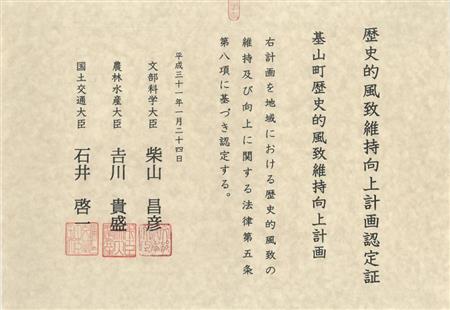 歴史的風致維持向上計画認定証
基山町歴史的風致維持向上計画
右計画を地域における歴史的風致の
維持及び向上に関する法律第五条
第八項に基づき認定する。
平成三十一年一月二十四日
文部科学大臣 柴山 昌彦
農林水産大臣 𠮷川 貴盛
国土交通大臣 石井 啓一